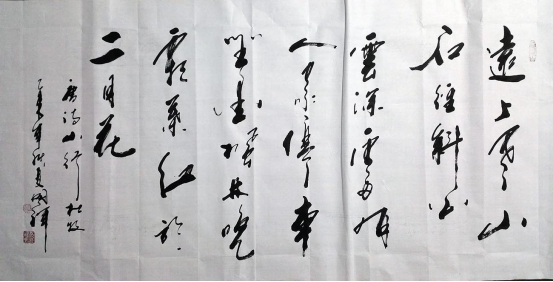 遠上寒山
石徑斜白
雲深處有
人家停車
坐愛楓林晚
霜葉紅於
二月花
唐詩山行 杜牧